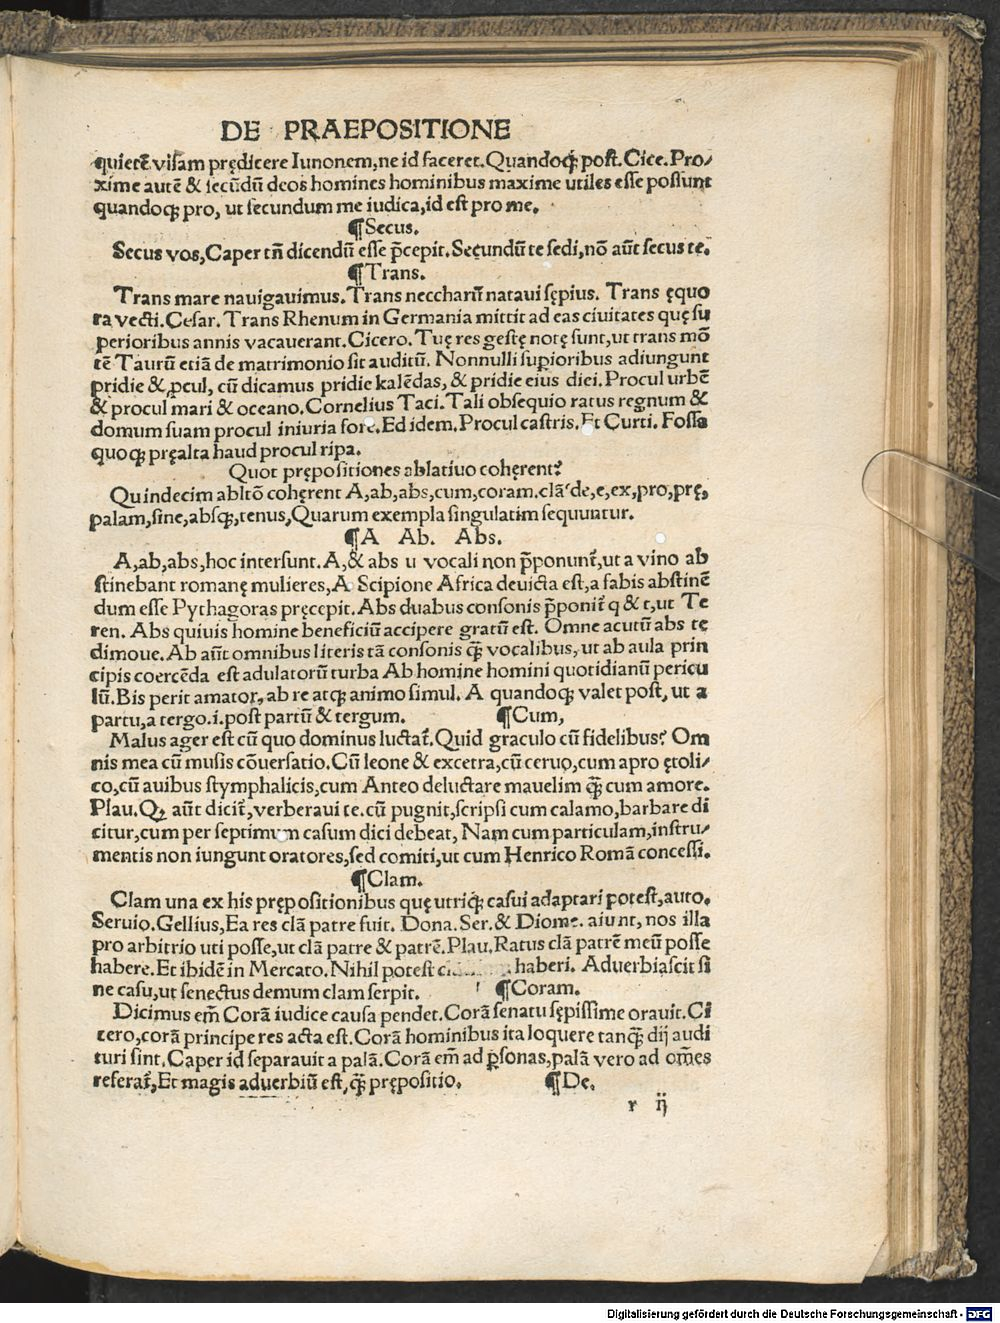 DE PRAEPOSITIONE
quietē visam prędicere Iunonem, ne id faceret. Quandoq; post. Cice. Pro/
xime autē & secūdū deos homines hominibus maxime utiles esse possunt
quandoq; pro, ut secundum me iudica, id est pro me.
¶Secus.
Secus vos, Caper tñ dicendū esse p̄cepit. Secundū te sedi, nō aūt secus te.
¶Trans.
Trans mare nauigauimus. Trans neccharū nataui sępius. Trans ęquo
ra vecti. Cesar. Trans Rhenum in Germania mittit ad eas ciuitates quę su
perioribus annis vacauerant. Cicero. Tuę res gestę notę sunt, ut trans mō
tē Taurū etiā de matrimonio sit auditū. Nonnulli supioribus adiungunt
pridie & ꝓcul, cū dicamus pridie kalēdas, & pridie eius diei. Procul urbē
& procul mari & oceano. Cornelius Taci. Tali obsequio ratus regnum &
domum suam procul iniuria fore. Ed idem. Procul castris. Et Curti. Fossa
quoq; pręalta haud procul ripa.
Quot prępositiones ablatiuo cohęrent?
Quindecim abltō cohęrent A, ab, abs, cum, coram. clā de, e, ex, pro, prę,
palam, sine, absq;, tenus, Quarum exempla singulatim sequuntur.
¶A Ab. Abs.
A, ab, abs, hoc intersunt. A, & abs u vocali non p̄ponunt̄, ut a vino ab
stinebant romanę mulieres, A Scipione Africa deuicta est, a fabis abstinē
dum esse Pythagoras pręcepit. Abs duabus consonis p̄ponit̄ q & t, ut Te
ren. Abs quiuis homine beneficiū accipere gratū est. Omne acutū abs te
dimoue. Ab aūt omnibus literis tā consonis q̄ȝ vocalibus, ut ab aula prin
cipis coercēda est adulatorū turba Ab homine homini quotidianū pericu
lū. Bis perit amator, ab re atq; animo simul. A quandoq; valet post, ut a
partu, a tergo. i. post partū & tergum. ¶Cum,
Malus ager est cū quo dominus luctat̄. Quid graculo cū fidelibus? Om
nis mea cū musis cōuersatio. Cū leone & excetra, cū ceruo, cum apro ętoli/
co, cū auibus stymphalicis, cum Anteo deluctare mauelim q̄ȝ cum amore.
Plau. Qꝫ aūt dicit̄, verberaui te. cū pugnit, scripsi cum calamo, barbare di
citur, cum per septimum casum dici debeat, Nam cum particulam, instru/
mentis non iungunt oratores, sed comiti, ut cum Henrico Romā concessi.
¶Clam.
Clam una ex his prępositionibus quę utriq; casui adaptari potest, auto.
Seruio. Gellius, Ea res clā patre fuit. Dona. Ser. & Diome. aiunt, nos illa
pro arbitrio uti posse, ut clā patre & patrē. Plau. Ratus clā patrē meū posse
habere. Et ibidē in Mercato. Nihil potest haberi. Aduerbiascit si
ne casu, ut senectus demum clam serpit. ¶Coram.
Dicimus em̄ Corā iudice causa pendet. Corā senatu sępissime orauit. Ci
cero, corā principe res acta est. Corā hominibus ita loquere tanq̄ȝ dij audi
turi sint. Caper id separauit a palā. Corā em̄ ad ꝑsonas, palā vero ad om̄es
referat̄, Et magis aduerbiū est, q̄ȝ prępositio. ¶De.
r ij
Digitalisierung gefördert durch die Deutsche Forschungsgemeinschaft - DFG